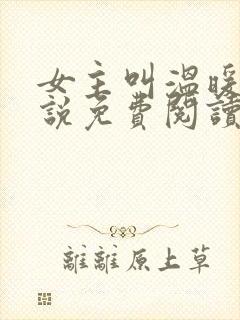 女主叫溫暖
說免費閱讀
離離原上草